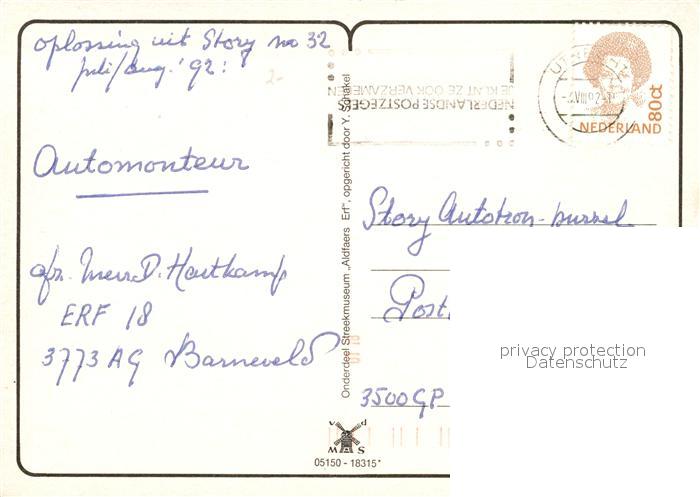 oplossing uit Story no 32
juli/aug. '92:
Automonteur
afz. Mevr. D. Hartkamp
ERF 18
3773 AG Barneveld
Onderdeel Streekmuseum „Aldfaers Erf", opgericht door Y. Schakel
NEDERLANDSE POSTZEGELS
JE KUNT ZE OOK VERZAMELEN
UTRECHT
NEDERLAND
80ct
Story Autotron-puzzel
Post
3500 GP
privacy protection
Datenschutz
05150 - 18315*